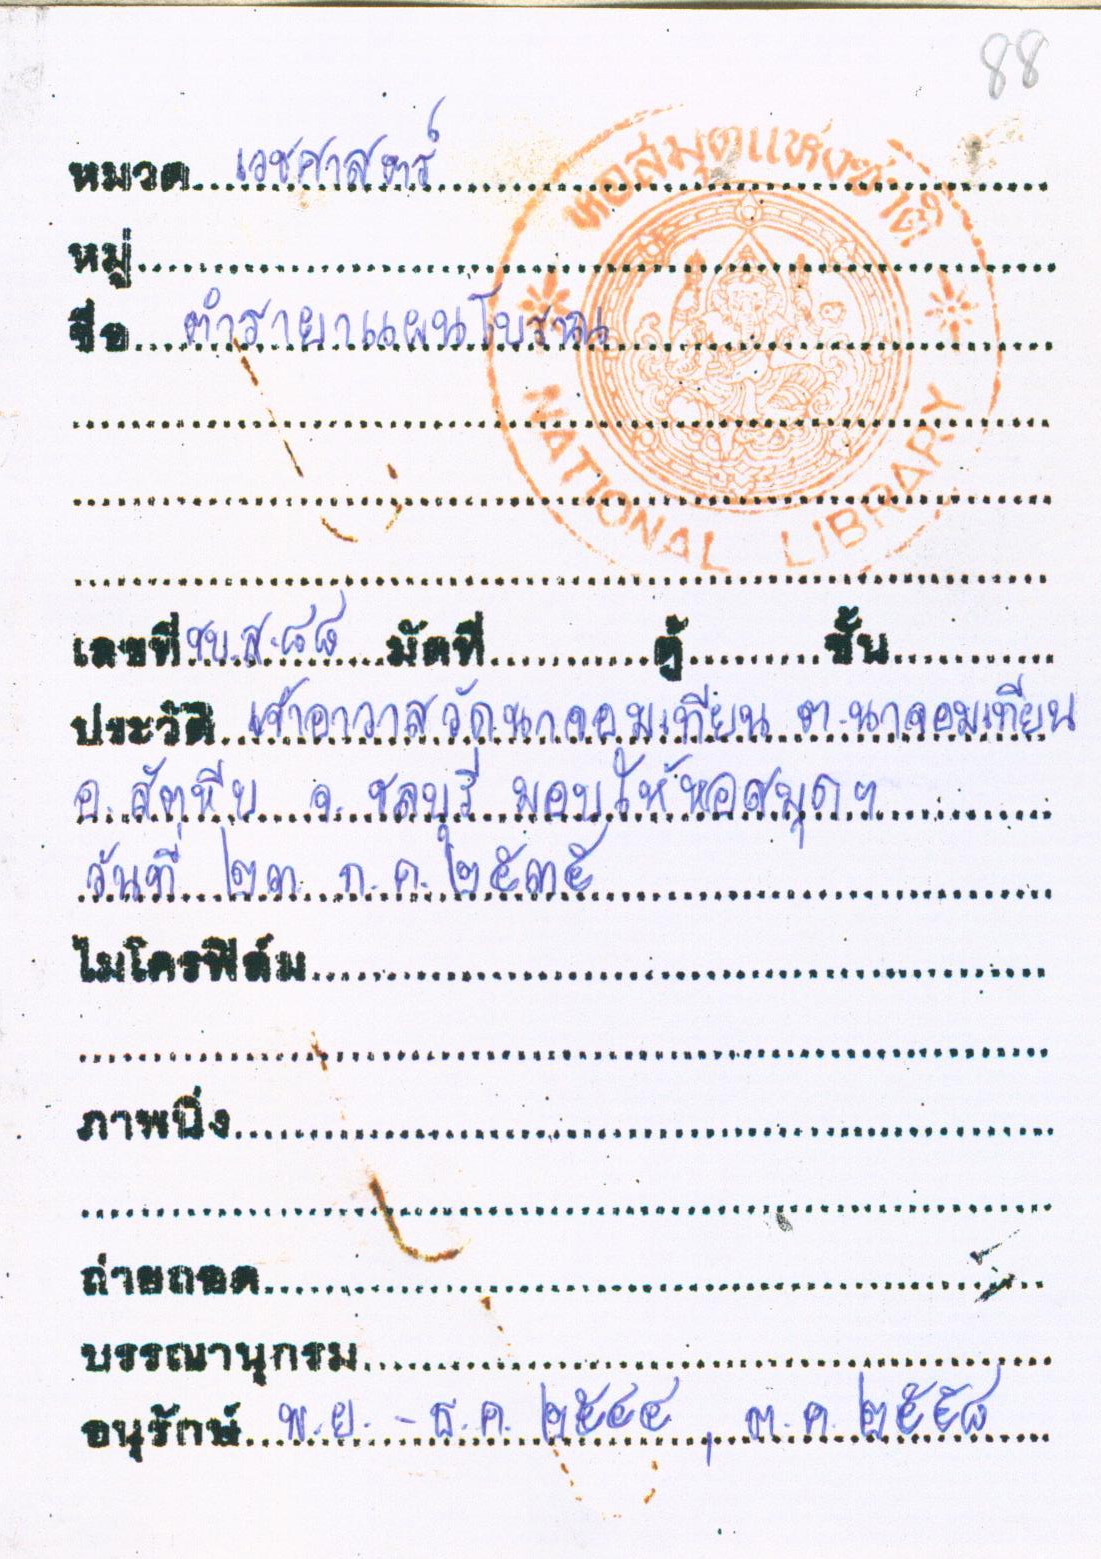 88
หอสมุดแห่งชาติ
NATIONAL LIBRARY
หมวด เวชศาสตร์
หมู่
ชื่อ ตำรายาแผนโบราณ
เลขที่ ชบ.ส.๘๘ มัดที่ ตู้ ชั้น
ประวัติ เจ้าอาวาสวัดนาจอมเทียน ต.นาจอมเทียน
อ.สัตหีบ จ.ชลบุรี มอบให้หอสมุดฯ
วันที่ ๒๓ ก.ค. ๒๕๓๕
ไมโครฟิล์ม
ภาพนิ่ง
ถ่ายถอด
บรรณานุกรม
อนุรักษ์ พ.ย. - ธ.ค. ๒๕๔๔, ต.ค. ๒๕๔๘